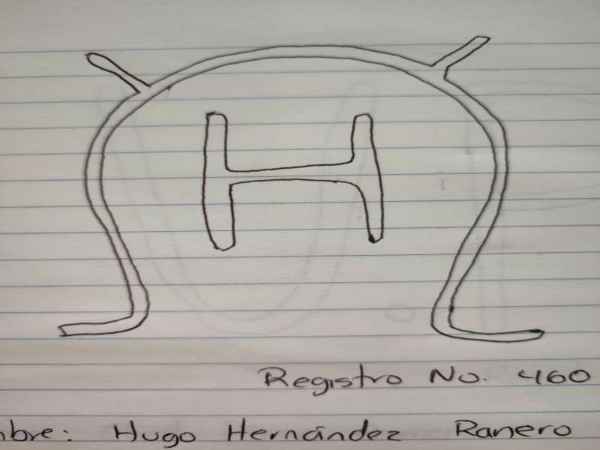 H
Registro No. 460
mbre: Hugo Hernández Ranero